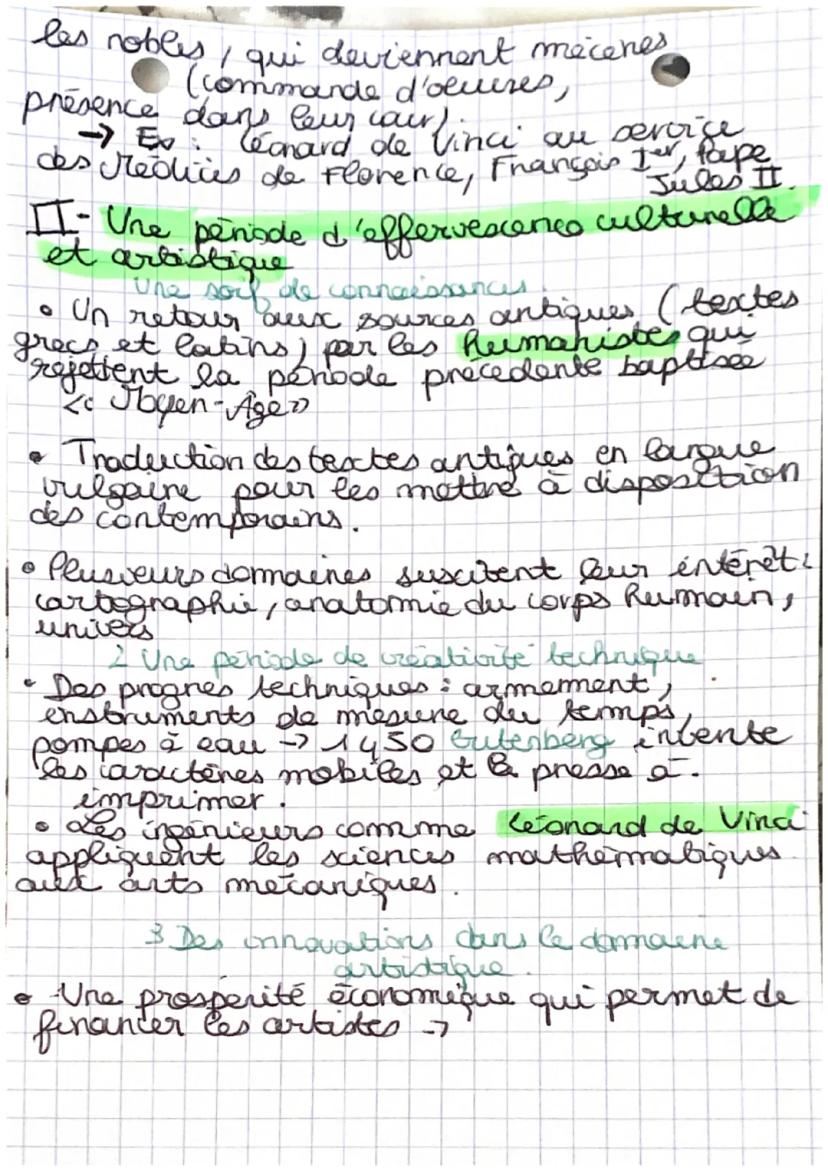 les nobles, qui deviennent mécènes
(commande d'oeuvres,
présence dans leur cour).
→ Ex : Léonard de Vinci au service
des Médicis de Florence, François Ier, Pape
Jules II.
II- Une période d'effervescence culturelle
et artistique
Une soif de connaissances.
• Un retour aux sources antiques (textes
grecs et latins) par les Humanistes qui
rejettent la période précédente baptisée
<< Moyen-Age>>
• Traduction des textes antiques en langue
vulgaire pour les mettre à disposition
des contemporains.
• Plusieurs domaines suscitent leur intérêt :
cartographie, anatomie du corps humain,
univers
2 Une période de créativité technique
• Des progrès techniques : armement,
instruments de mesure du temps,
pompes à eau → 1450 Gutenberg invente
les caractères mobiles et la presse à
imprimer.
• Les ingénieurs comme Léonard de Vinci
appliquent les sciences mathématiques
aux arts mécaniques.
3 Des innovations dans le domaine
artistique.
• Une prospérité économique qui permet de
financer les artistes →